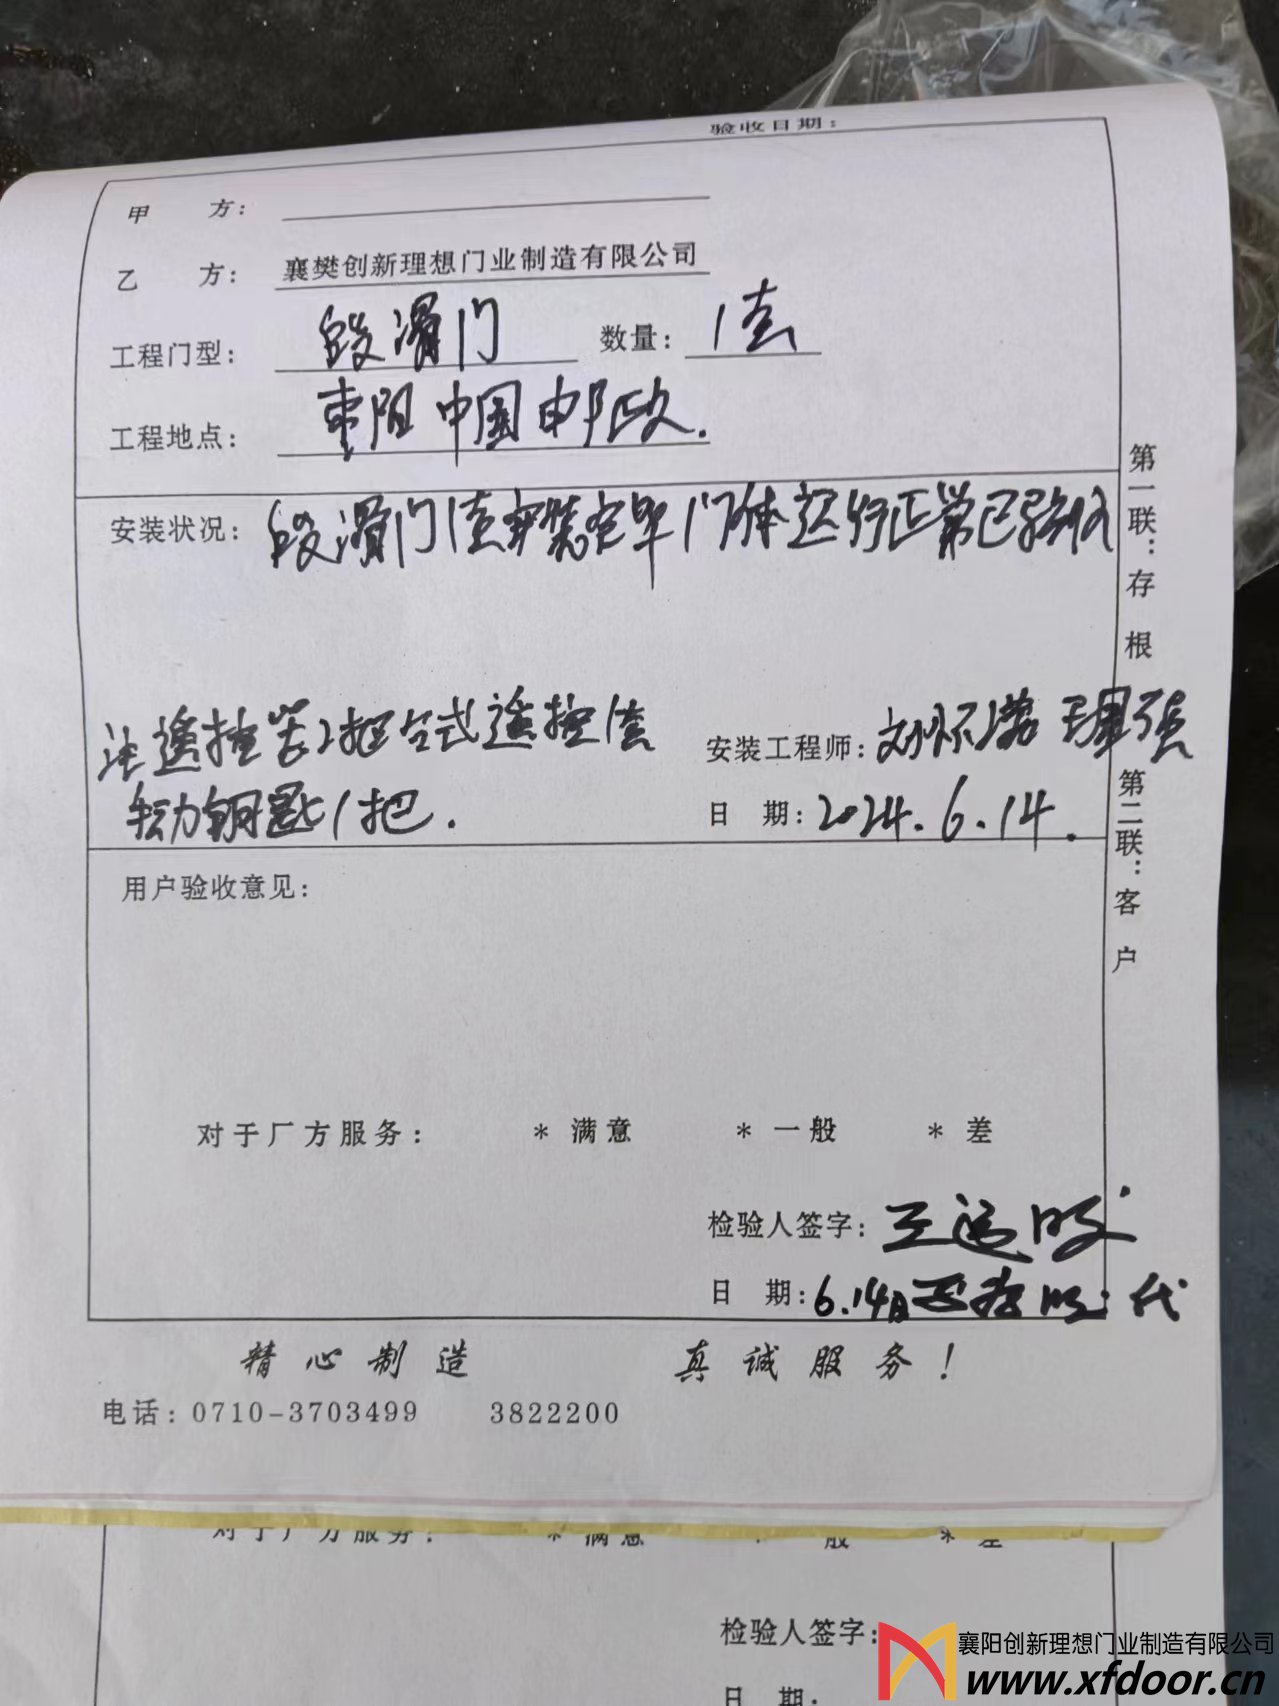 验收日期:
甲 方:
乙 方: 襄樊创新理想门业制造有限公司
工程门型: 段滑门 数量: 1套
工程地点: 枣阳中国邮政.
安装状况: 段滑门1套安装完毕门体运行正常已验收
注遥控器2把台式遥控1套
手动钥匙1把.
安装工程师: 刘怀 强
日 期: 2024.6.14.
用户验收意见:
对于厂方服务: * 满意 * 一般 * 差
检验人签字: 王运
日 期: 6.14日 代
精心制造 真诚服务!
电话: 0710-3703499 3822200
第一联:存根 第二联:客户
对于厂方服务: * 满意 般 * 差
检验人签字:
日 期:
襄阳创新理想门业制造有限公司
www.xfdoor.cn